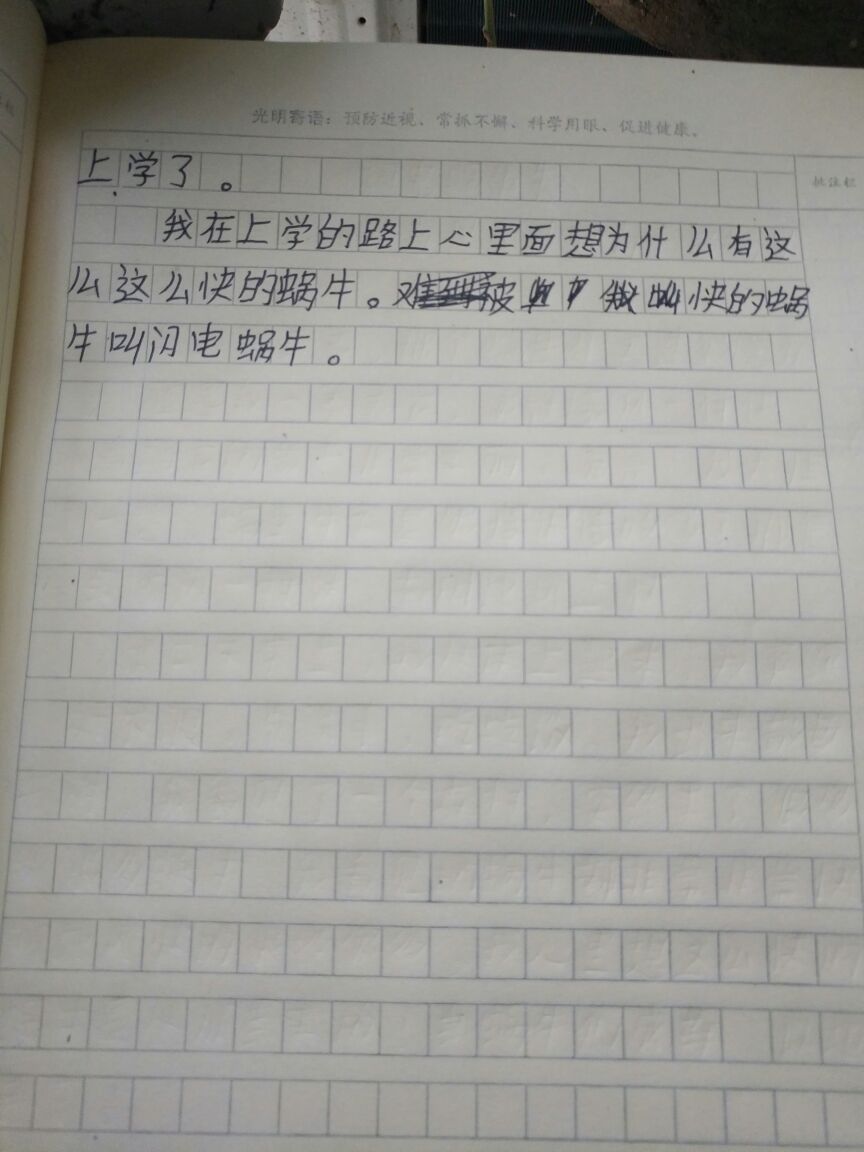 光明寄语：预防近视、常抓不懈、科学用眼、促进健康。
批注栏
上学了。
我在上学的路上心里面想为什么有这
么这么快的蜗牛。难被叫快的蜗
牛叫闪电蜗牛。